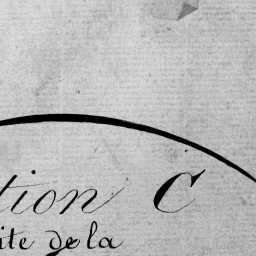 tion C
ite de la